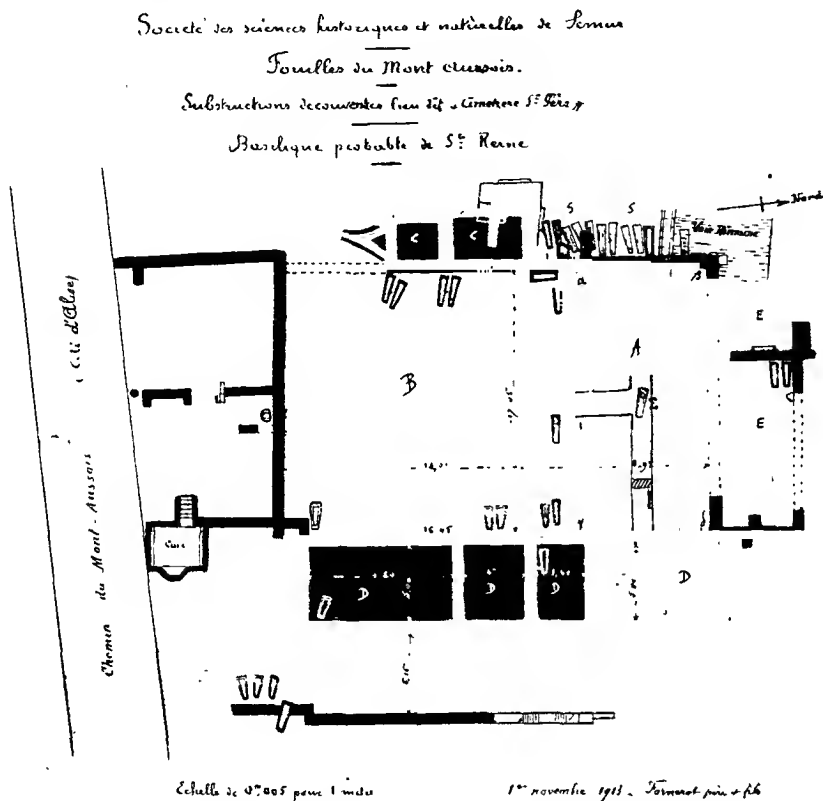 Société des sciences historiques et naturelles de Semur
Fouilles du Mont Auxois.
Substructions découvertes lieu dit « Cimetière St Père »
Basilique probable de Ste Reine
Nord
Voie Romaine
S S
C C
a
B
E
A
B
E
(Cité d'Alise)
Chemin du Mont-Auxois
Cave
16.45
D D D
D
Echelle de 0m.005 pour 1 mètre
1er novembre 1913. Fornerot père & fils